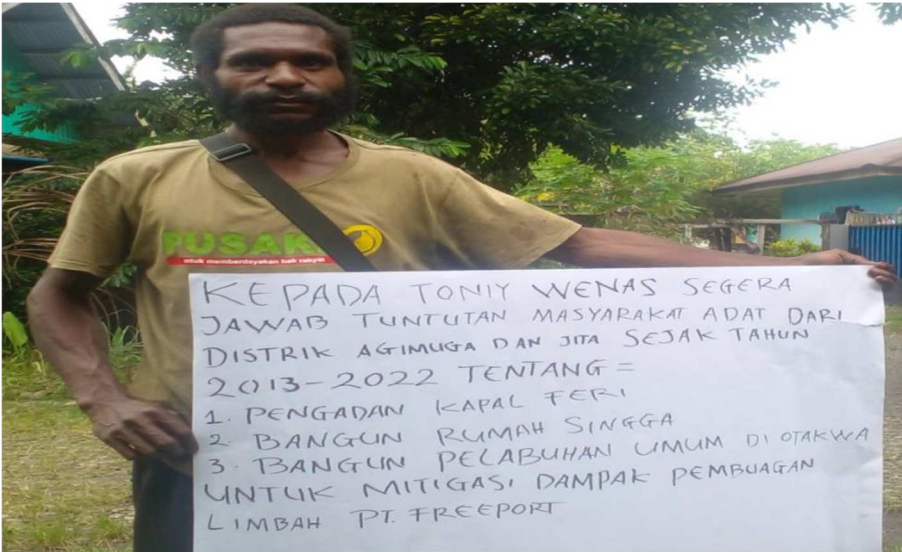 PUSAKA
untuk memberdayakan hak rakyat
KEPADA TONIY WENAS SEGERA
JAWAB TUNTUTAN MASYARAKAT ADAT DARI
DISTRIK AGIMUGA DAN JITA SEJAK TAHUN
2013-2022 TENTANG =
1. PENGADAN KAPAL FERI
2. BANGUN RUMAH SINGGA
3. BANGUN PELABUHAN UMUM DI OTAKWA
UNTUK MITIGASI DAMPAK PEMBUAGAN
LIMBAH PT. FREEPORT